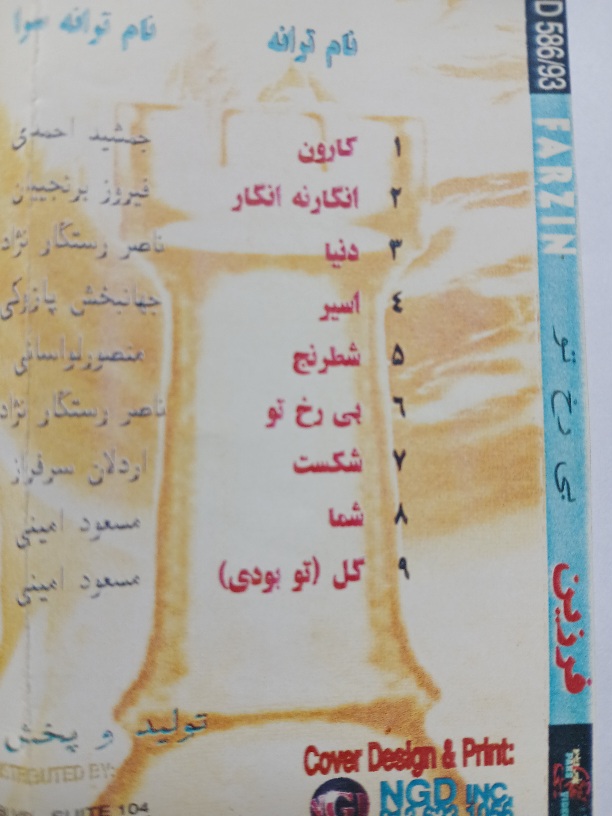 نام ترانه نام ترانه سرا
۱ کارون جمشید احمدی
۲ انگارنه انگار فیروز برنجیان
۳ دنیا ناصر رستگار نژاد
۴ اسیر جهانبخش پازوکی
۵ شطرنج منصورلواسانی
۶ بی رخ تو ناصر رستگار نژاد
۷ شکست اردلان سرفراز
۸ شما مسعود امینی
۹ گل (تو بودی) مسعود امینی
تولید و پخش
DISTRIBUTED BY:
SUITE 104
Cover Design & Print:
NGD INC.
D 586/93
FARZIN
بی رخ تو
فرزین